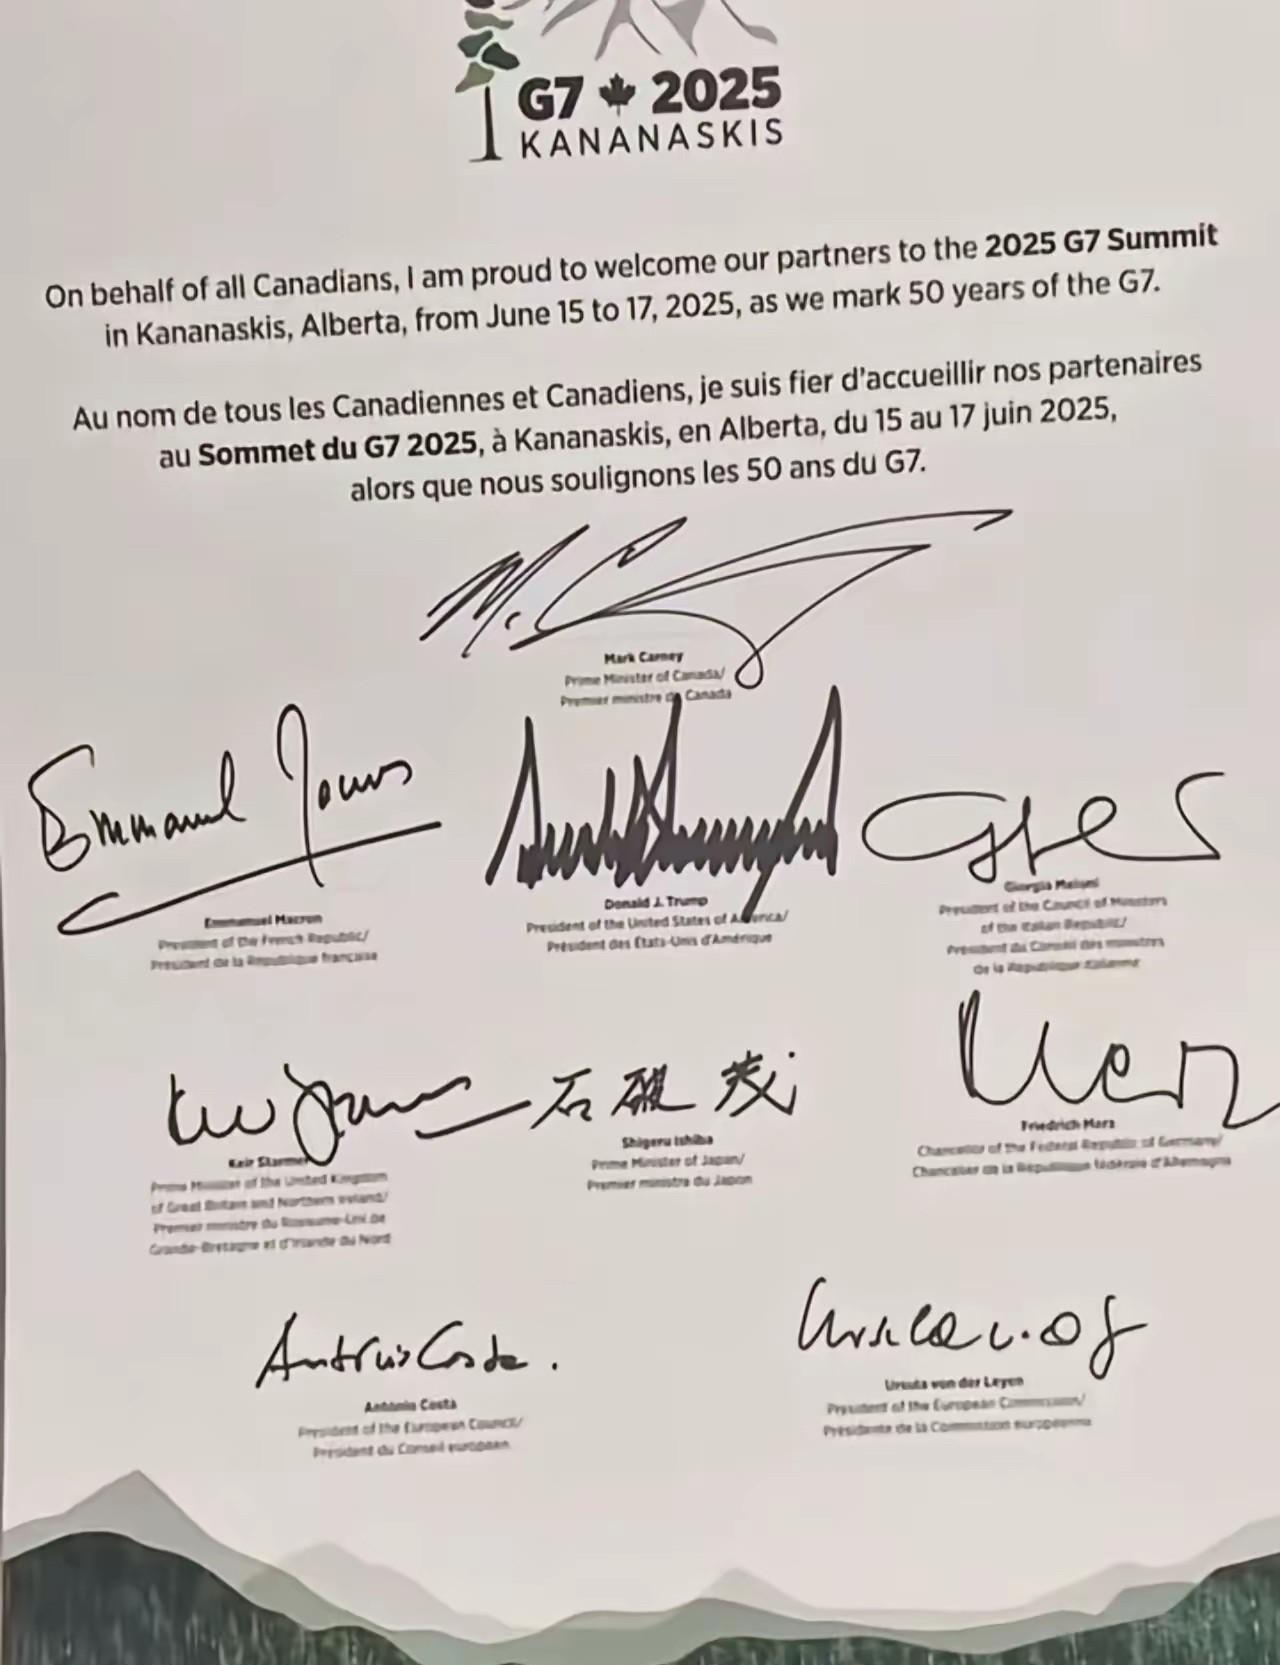 G7 2025
KANANASKIS
On behalf of all Canadians, I am proud to welcome our partners to the 2025 G7 Summit
in Kananaskis, Alberta, from June 15 to 17, 2025, as we mark 50 years of the G7.
Au nom de tous les Canadiennes et Canadiens, je suis fier d'accueillir nos partenaires
au Sommet du G7 2025, à Kananaskis, en Alberta, du 15 au 17 juin 2025,
alors que nous soulignons les 50 ans du G7.
M. C
Mark Carney
Prime Minister of Canada/
Premier ministre du Canada
Emmanuel
Emmanuel Macron
President of the French Republic/
Président de la République française
Donald J. Trump
President of the United States of America/
Président des États-Unis d'Amérique
Giorgia Meloni
President of the Council of Ministers
of the Italian Republic/
Président du Conseil des ministres
de la République italienne
Keir Starmer
Prime Minister of the United Kingdom
of Great Britain and Northern Ireland/
Premier ministre du Royaume-Uni de
Grande-Bretagne et d'Irlande du Nord
石破茂
Shigeru Ishiba
Prime Minister of Japan/
Premier ministre du Japon
Merz
Friedrich Merz
Chancellor of the Federal Republic of Germany/
Chancelier de la République fédérale d'Allemagne
António Costa.
António Costa
President of the European Council/
Président du Conseil européen
Ursula v.
Ursula von der Leyen
President of the European Commission/
Présidente de la Commission européenne